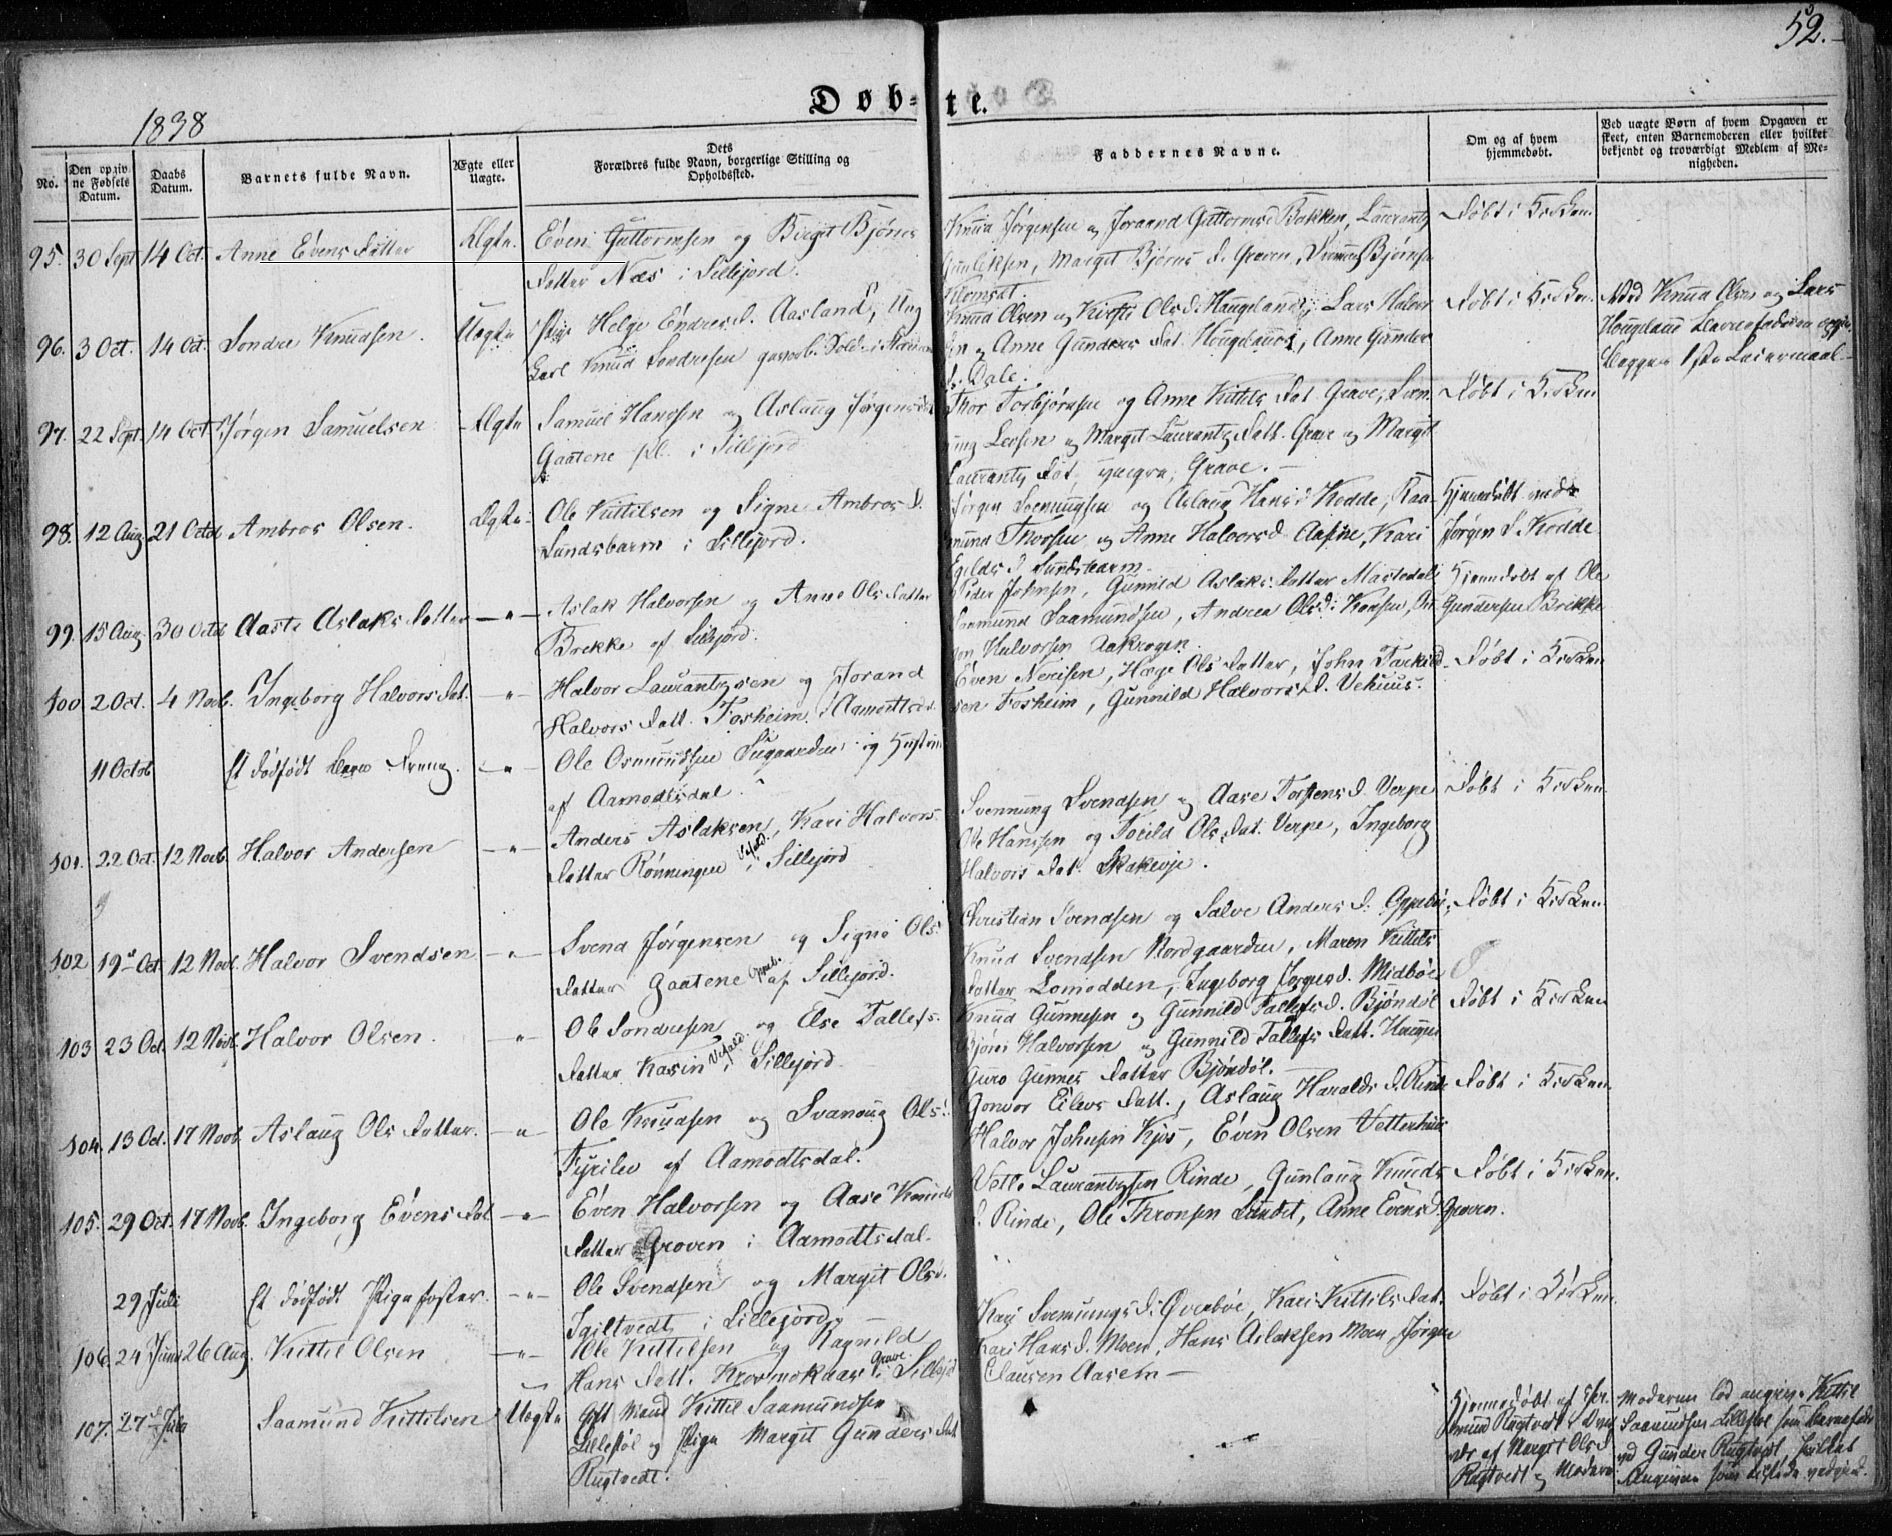 52.
Døb-te.
1838
No.
Den opgiv-
ne Fødsels
Datum.
Daabs
Datum.
Barnets fulde Navn.
Ægte eller
Uægte.
Dets
Forældres fulde Navn, borgerlige Stilling og
Opholdssted.
Faddernes Navne.
Om og af hvem
hjemmedøbt.
Ved uægte Børn af hvem Opgaven er
skeet, enten Barnemoderen eller hvilket
bekjendt og troværdigt Medlem af Me-
nigheden.
95. 30 Sept 14 Oct. Anne Evens Datter Ægte. Even Guttormsen og Birgit Bjørns
Datter Næs i Sillejord.
Knud Jørgensen og Joraand Guttorms D. Bakken, Laurantz
Gunleksen, Margit Bjørns D. Groven, Bjørnsen
Døbt i Kirken.
96. 3 Oct. 14 Oct. Sondre Knudsen. Uægte Pige Helge Endres D. Aasland, Ung
Carl Knud Sondresen
Knud Olsen og Kirsti Ols D. Haugeland, Lars Halvor
sen og Anne Gunders Dat. Hougeland, Anne Gunders
D. Dale.
Døbt i Kirken.
Ved Knud Olsen og Lars
Hougeland Barnefaderen
Begges 1ste Leiermaal
97. 22 Sept. 14 Oct. Jørgen Samuelsen Ægte Samuel Hansen og Aslaug Jørgensdat
Gaatene pl. i Sillejord
Thor Torbjørnsen og Anne Kittils Dat. Grave, Sven
nung Leifsen og Margit Laurantz Datt. Grave og Margit
Laurantz Dat. Grave.
Døbt i Kirken
98. 12 Aug 21 Octob Ambros Olsen. Ægte Ole Kittilsen og Signe Ambros D.
Sundsbarm i Sillejord.
Jørgen Svennungsen og Aslaug Hans D. Kodde, Saa-
mund Thorsen og Anne Halvors D. Aasine, Kari
Egilds D. Sundsbarm.
Hjemmedøbt ved
Jørgen S. Kodde
99. 15 Aug. 30 Octob Aaste Aslaks Datter — " — Aslak Halvorsen og Anne Ols Datter
Brekke af Sillejord.
Peder Johnsen, Gunnild Aslaks Datter Mastedal
Saamund Saamundsen, Andrea Ols D.
Halvorsen Aakrogen.
Hjemmedøbt af Ole
Gundersen Brekke
100 2 Oct. 4 Novb. Ingeborg Halvors Dat. — " — Halvor Laurantzsen og Jorand
Halvors Datt. Forsheim i Aamotsdal
Even Nerisen, Hæge Ols Datter, John Torkild-
sen Fosheim, Gunnild Halvors D. Vehuus.
Døbt i Kirken
11 Octob Et dødfødt Barn Dreng. — " — Ole Osmundsen Sugaarden og Hustru
af Aamodtsdal.
101. 22 Oct. 12 Novb. Halvor Andersen — " — Anders Aslaksen, Kari Halvors-
Datter Rønningen i Sillejord
Svennung Svendsen og Aase Torstens D. Verpe
Ole Hanssen og Toeild Ols Dat. Verpe, Ingeborg
Halvors Dat. Skakevje.
Døbt i Kirken.
102 19 Oct. 12 Novb. Halvor Svendsen — " — Svend Jørgensen og Signe Ols
Datter Gaatene af Sillejord.
Christian Svendsen og Salve Anders D. Oppebøe,
Knud Svendsen Nordgaarden, Maren Kittils
Datter Lomodden, Ingeborg Jørgens D. Midbøe
Døbt i Kirken
103 23 Oct. 12 Novb. Halvor Olsen. — " — Ole Sondresen og Else Tallefs-
Datter Kasin i Sillejord
Knud Gunnesen og Gunnild Tallefs D. Bjøndøl
Bjørn Halvorsen og Gunnild Tallefs Datt.
Guro Gunnes Datter Bjøndøl.
Døbt i Kirken
104. 13 Oct. 17 Novb. Aslaug Ols Datter. — " — Ole Knudsen og Svanoug Ols
Fyrilev af Aamodtsdal.
Gonvor Eilevs Datt., Aslaug Haralds D. Rinde
Halvor Johnsen Kjos, Even Olsen Vetterhuus
Døbt i Kirken.
105. 29 Oct. 17 Novb. Ingeborg Evens Dat — " — Even Halvorsen og Aase Knuds
Datter Groven i Aamodtsdal.
Vetle Laurantzsen Rinde, Gunlaug Knuds
D. Rinde, Ole Thronsen Lundet, Anne Evens D. Groven.
Døbt i Kirken.
29 Juli Et dødfødt Pigefoster. — " — Ole Svendsen og Margit Ols D.
Igiltvedt i Sillejord
106. 24 Juni 26 Aug. Kittil Olsen — " — Ole Kittilsen og Ragnild
Hans Datt. Grave i Sillejord
Kari Svennungs D. Øverbøe, Kari Kittils Dat.
Kari Hans D. Moen, Hans Aslaksen Moen, Jørgen
Clausen Aasen
Døbt i Kirken.
107. 27 Juli Saamund Kittilsen Uægte Gift Mand Kittil Saamundsen
Lillestøl og Pige Margit Gunders Dat
Rugtvedt.
Hjemmedøbt af
Rugtvedt
af Margit Ols D.
Rugtvedt og Moderen
Moderen lod angive Kittil
Saamundsen Lillestøl som Barnefader
ved Gunder Rugtvedt